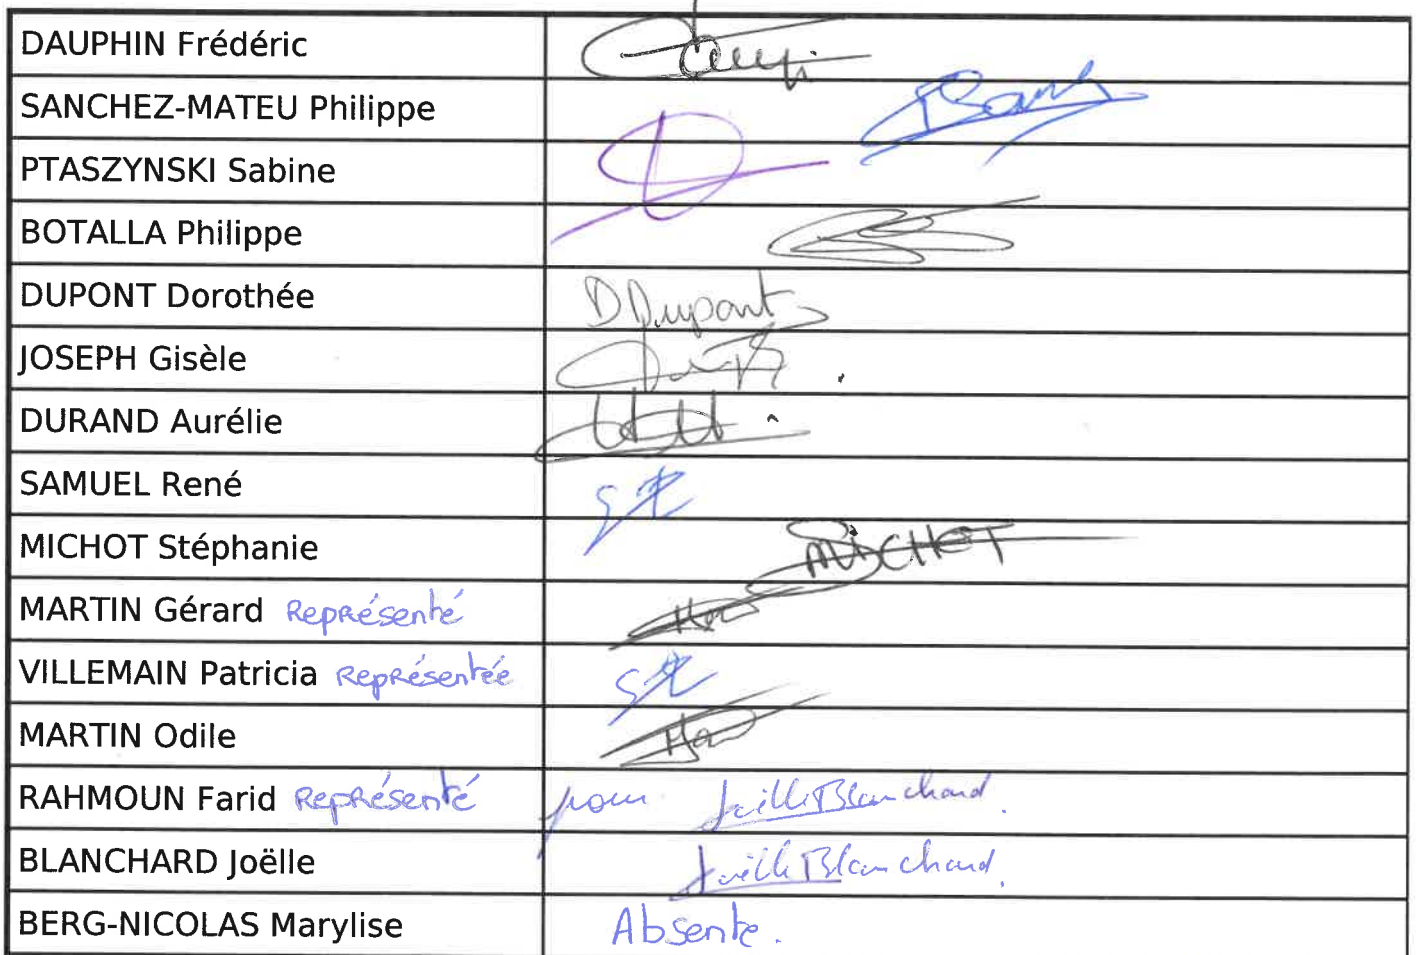 DAUPHIN Frédéric
SANCHEZ-MATEU Philippe
PTASZYNSKI Sabine
BOTALLA Philippe
DUPONT Dorothée D Dupont
JOSEPH Gisèle
DURAND Aurélie
SAMUEL René
MICHOT Stéphanie MICHOT
MARTIN Gérard Représenté
VILLEMAIN Patricia Représentée
MARTIN Odile
RAHMOUN Farid Représenté pour Joëlle Blanchard.
BLANCHARD Joëlle Joëlle Blanchard.
BERG-NICOLAS Marylise Absente.